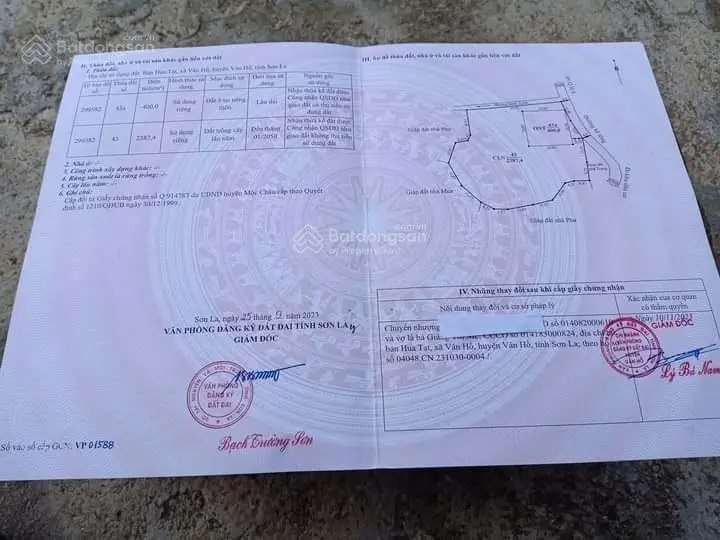 II. Thửa đất, nhà ở và tài sản khác gắn liền với đất
1. Thửa đất:
Địa chỉ sử dụng đất: Bản Hua Tạt, xã Vân Hồ, huyện Vân Hồ, tỉnh Sơn La
Tờ bản đồ số Thửa đất số Diện tích(m²) Hình thức sử dụng Mục đích sử dụng Thời hạn sử dụng Nguồn gốc sử dụng
299582 43a 400,0 Sử dụng riêng Đất ở tại nông thôn Lâu dài Nhận thừa kế đất được Công nhận QSDĐ như giao đất có thu tiền sử dụng đất
299582 43 2387,4 Sử dụng riêng Đất trồng cây lâu năm Đến tháng 01/2058 Nhận thừa kế đất được Công nhận QSDĐ như giao đất không thu tiền sử dụng đất
2. Nhà ở: -/-
3. Công trình xây dựng khác: -/-
4. Rừng sản xuất là rừng trồng: -/-
5. Cây lâu năm: -/-
6. Ghi chú:
Cấp đổi từ Giấy chứng nhận số Q 914783 do UBND huyện Mộc Châu cấp theo Quyết
định số 1210/QĐUB ngày 30/12/1999.
Sơn La, ngày 25 tháng 9 năm 2023
VĂN PHÒNG ĐĂNG KÝ ĐẤT ĐAI TỈNH SƠN LA
GIÁM ĐỐC
VĂN PHÒNG
ĐĂNG KÝ
ĐẤT ĐAI
Bạch Tường Sơn
Số vào sổ cấp GCN: VP 01588
III. Sơ đồ thửa đất, nhà ở và tài sản khác gắn liền với đất
Giáp đất nhà Phư
43a
ONT 400,0
43
CLN 2387,4
Giáp đất nhà Mua
Giáp đất nhà Phư
IV. Những thay đổi sau khi cấp giấy chứng nhận
Nội dung thay đổi và cơ sở pháp lý
Xác nhận của cơ quan có thẩm quyền
Chuyển nhượng
số 014082000610
và vợ là bà Giàng
014183000824, địa chỉ
bản Hua Tạt, xã Vân Hồ, huyện Vân Hồ, tỉnh Sơn La; theo
số 04048.CN.231030-0004./
Ngày 10/11/2023
GIÁM ĐỐC
CHI NHÁNH
VĂN PHÒNG
ĐĂNG KÝ ĐẤT ĐAI
HUYỆN
VÂN HỒ
Lý Bá Nam
Batdongsan
by PropertyGuru
.com.vn